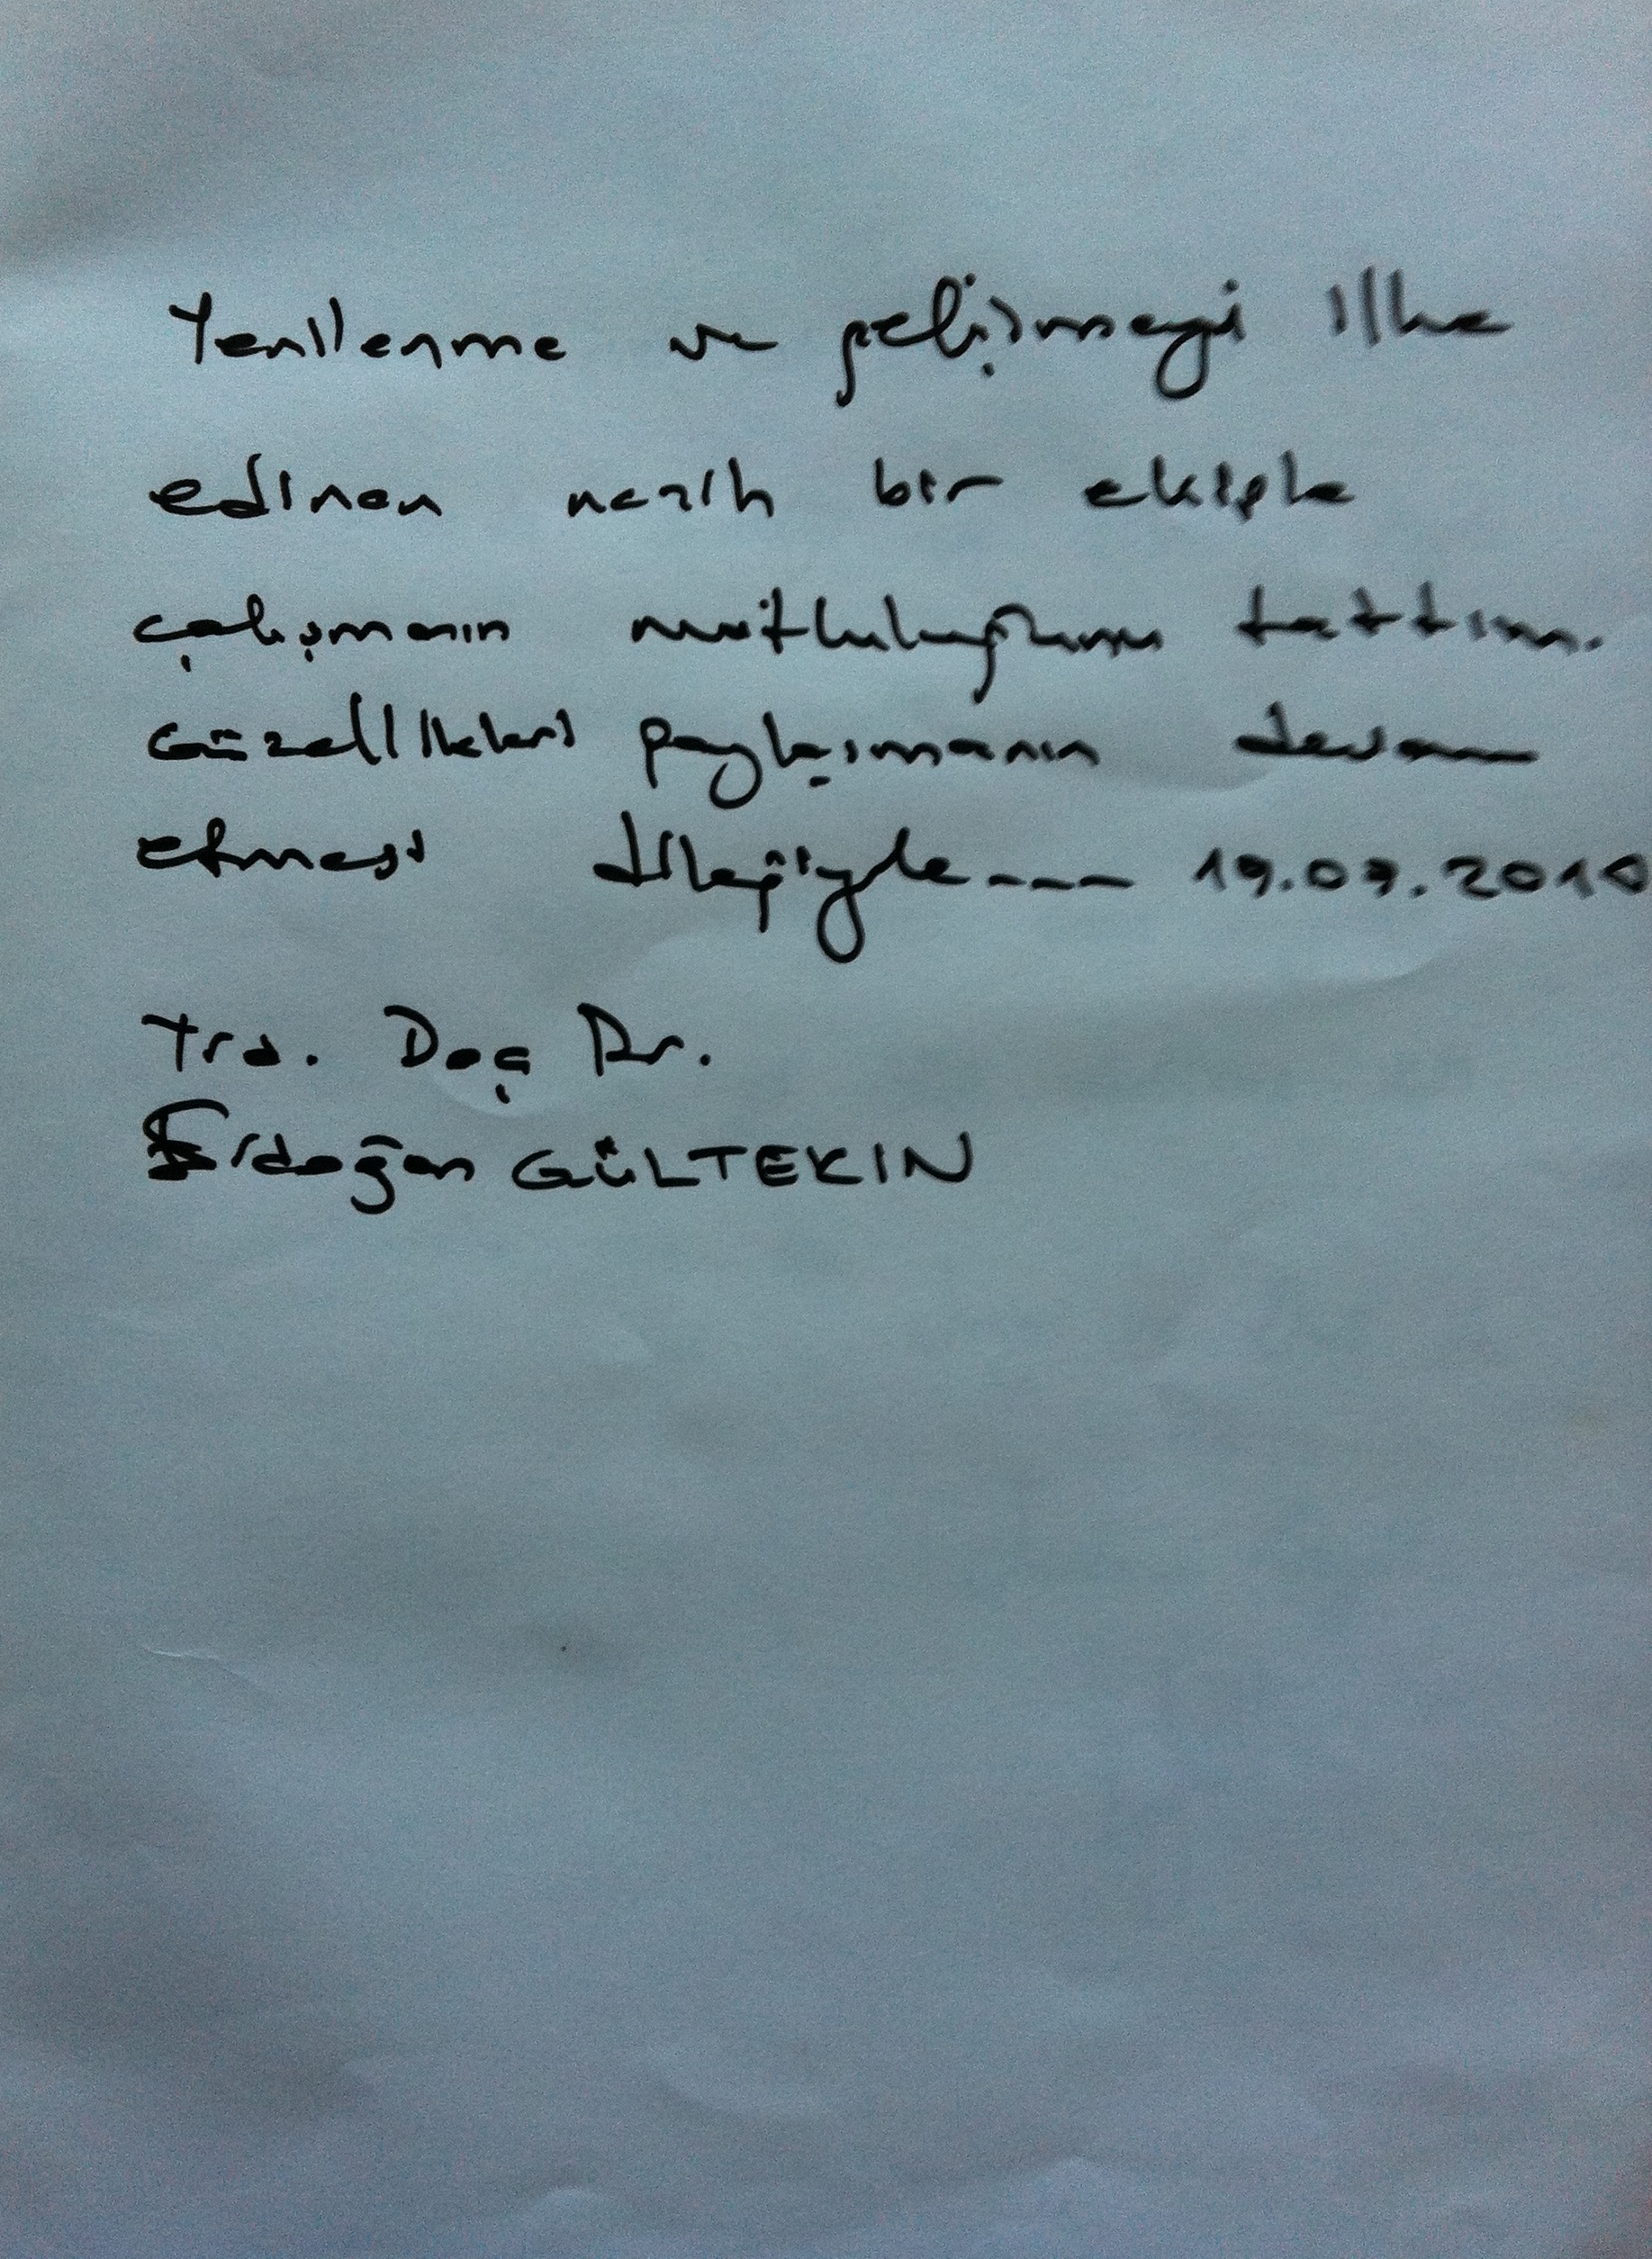 Yenilenme ve gelişmeyi ilke
edinen nezih bir ekiple
çalışmanın mutluluğunu tattım.
Güzellikleri paylaşmanın devam
etmesi dileğiyle---- 19.07.2010
Yrd. Doç Dr.
Erdoğan GÜLTEKIN